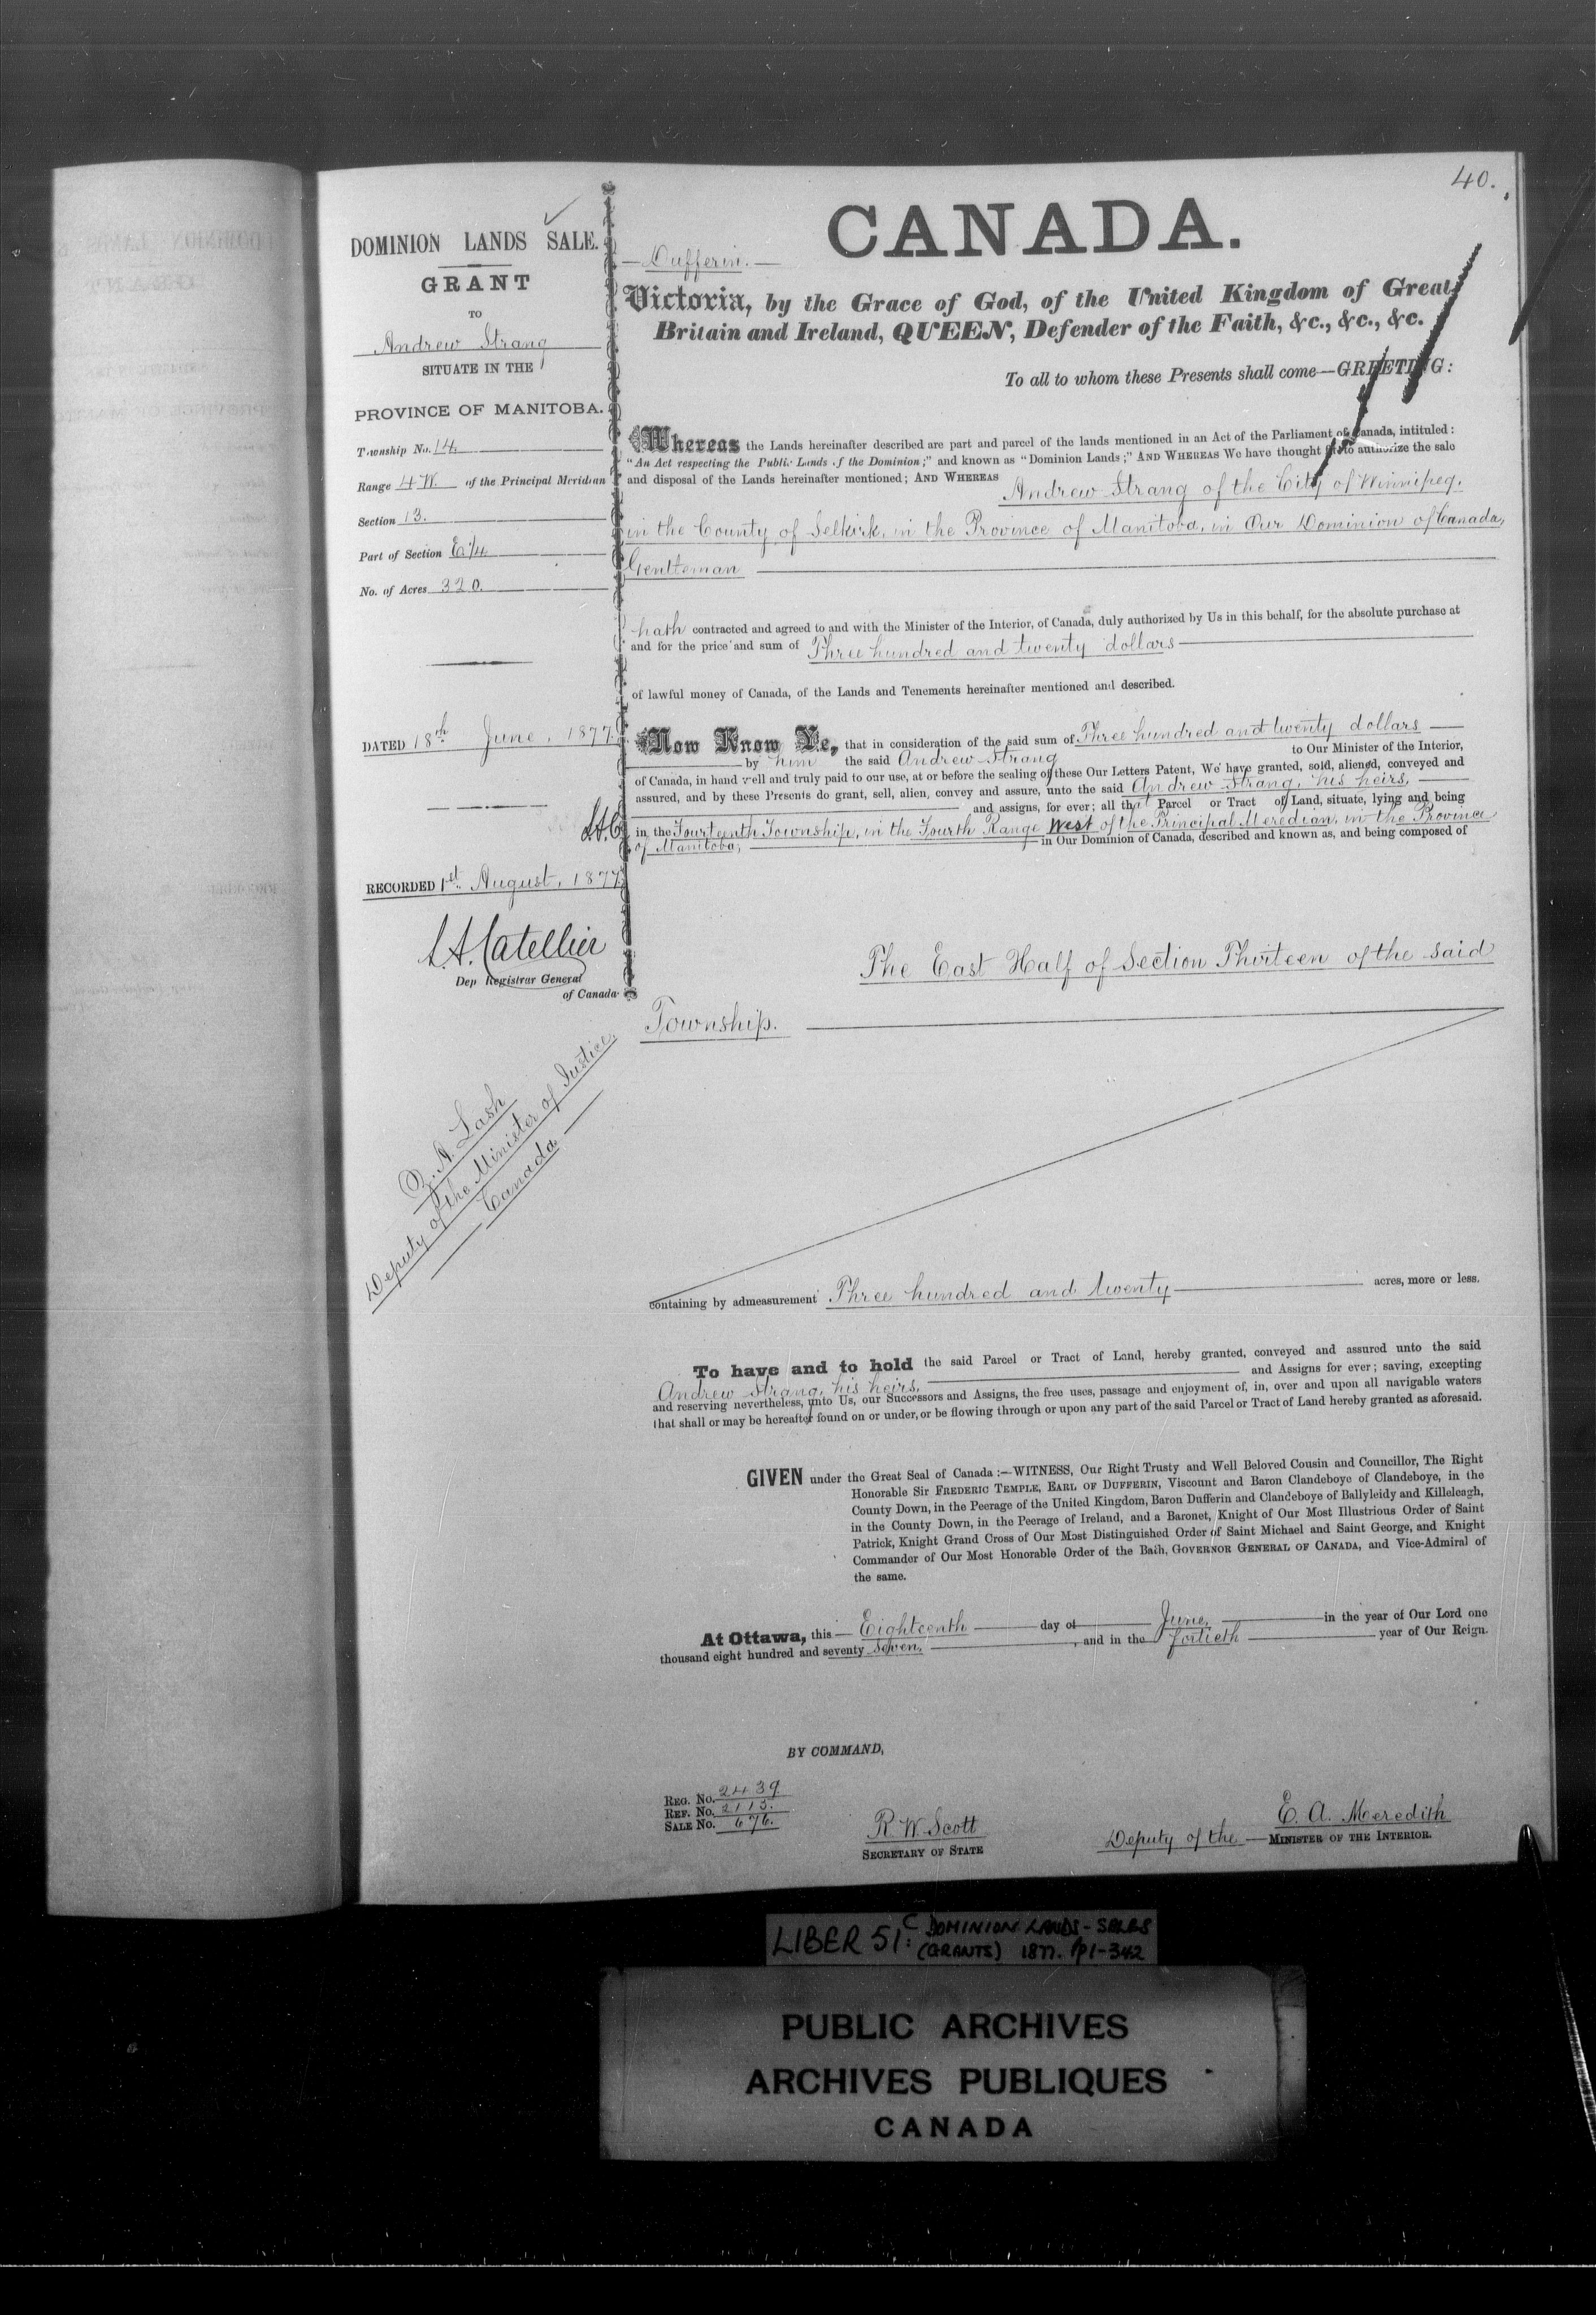 40.
DOMINION LANDS SALE.
GRANT
TO
Andrew Strang
SITUATE IN THE
PROVINCE OF MANITOBA.
Township No. 14.
Range 4 W. of the Principal Meridian
Section 13.
Part of Section E 1/4
No. of Acres 320.
DATED 18th June, 1877.
RECORDED 1st August, 1877.
L.A. Catellier
Dep Registrar General
of Canada
Z. A. Lash
Deputy of the Minister of Justice,
Canada
CANADA.
Dufferin.
Victoria, by the Grace of God, of the United Kingdom of Great
Britain and Ireland, QUEEN, Defender of the Faith, &c., &c., &c.
To all to whom these Presents shall come—GREETING:
Whereas the Lands hereinafter described are part and parcel of the lands mentioned in an Act of the Parliament of Canada, intituled:
"An Act respecting the Public Lands of the Dominion;" and known as "Dominion Lands;" AND WHEREAS We have thought fit to authorize the sale
and disposal of the Lands hereinafter mentioned; AND WHEREAS Andrew Strang of the City of Winnipeg,
in the County of Selkirk, in the Province of Manitoba, in Our Dominion of Canada,
Gentleman
hath contracted and agreed to and with the Minister of the Interior, of Canada, duly authorized by Us in this behalf, for the absolute purchase at
and for the price and sum of Three hundred and twenty dollars
of lawful money of Canada, of the Lands and Tenements hereinafter mentioned and described.
Now Know Ye, that in consideration of the said sum of Three hundred and twenty dollars
by him the said Andrew Strang to Our Minister of the Interior,
of Canada, in hand well and truly paid to our use, at or before the sealing of these Our Letters Patent, We have granted, sold, aliened, conveyed and
assured, and by these Presents do grant, sell, alien, convey and assure, unto the said Andrew Strang, his heirs,
and assigns, for ever; all that Parcel or Tract of Land, situate, lying and being
L.A.C. in the Fourteenth Township, in the Fourth Range West of the Principal Meredian, in the Province
of Manitoba, in Our Dominion of Canada, described and known as, and being composed of
The East Half of Section Thirteen of the said
Township.
containing by admeasurement Three hundred and twenty acres, more or less.
To have and to hold the said Parcel or Tract of Land, hereby granted, conveyed and assured unto the said
Andrew Strang, his heirs, and Assigns for ever; saving, excepting
and reserving nevertheless, unto Us, our Successors and Assigns, the free uses, passage and enjoyment of, in, over and upon all navigable waters
that shall or may be hereafter found on or under, or be flowing through or upon any part of the said Parcel or Tract of Land hereby granted as aforesaid.
GIVEN under the Great Seal of Canada:—WITNESS, Our Right Trusty and Well Beloved Cousin and Councillor, The Right
Honorable Sir FREDERIC TEMPLE, EARL OF DUFFERIN, Viscount and Baron Clandeboye of Clandeboye, in the
County Down, in the Peerage of the United Kingdom, Baron Dufferin and Clandeboye of Ballyleidy and Killeleagh,
in the County Down, in the Peerage of Ireland, and a Baronet, Knight of Our Most Illustrious Order of Saint
Patrick, Knight Grand Cross of Our Most Distinguished Order of Saint Michael and Saint George, and Knight
Commander of Our Most Honorable Order of the Bath, GOVERNOR GENERAL OF CANADA, and Vice-Admiral of
the same.
At Ottawa, this Eighteenth day of June, in the year of Our Lord one
thousand eight hundred and seventy seven, and in the fortieth year of Our Reign.
BY COMMAND,
REG. No. 2439
REF. No. 2113.
SALE No. 676.
R. W. Scott
SECRETARY OF STATE
E. A. Meredith
Deputy of the MINISTER OF THE INTERIOR.
LIBER 51: C DOMINION LANDS - SALES
(GRANTS) 1877. pp1-342
PUBLIC ARCHIVES
ARCHIVES PUBLIQUES
CANADA